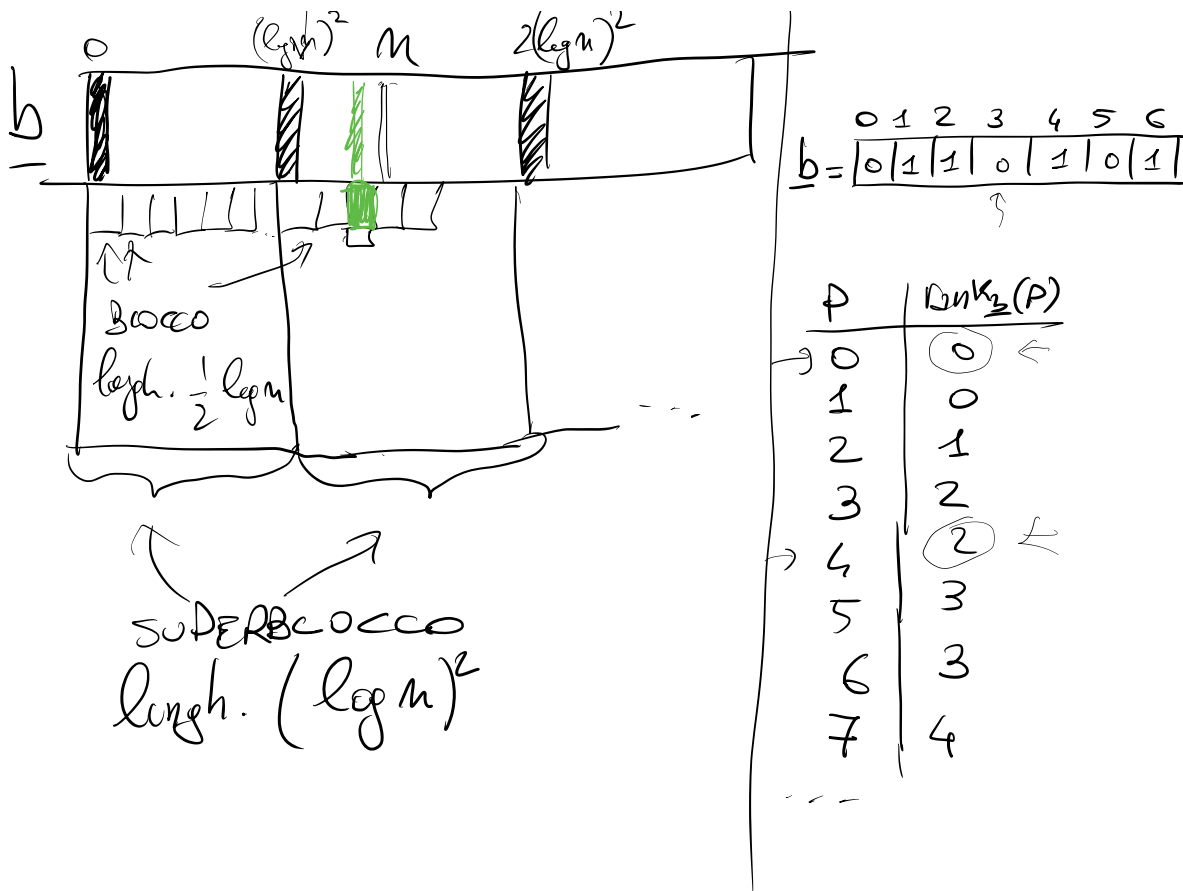 0 (log n)² n 2(log n)²
b
BLOCCO
lungh. 1/2 log n
...
....
SUPERBLOCCO
lungh. (log n)²
0 1 2 3 4 5 6
b = 0 1 1 0 1 0 1
P rank_b(P)
0 0
1 0
2 1
3 2
4 2
5 3
6 3
7 4
....